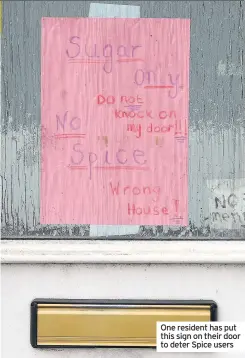 Sugar
Only.
DO NOT
knock on
my door!!
No
Spice
Wrong
House!
NO
One resident has put
this sign on their door
to deter Spice users